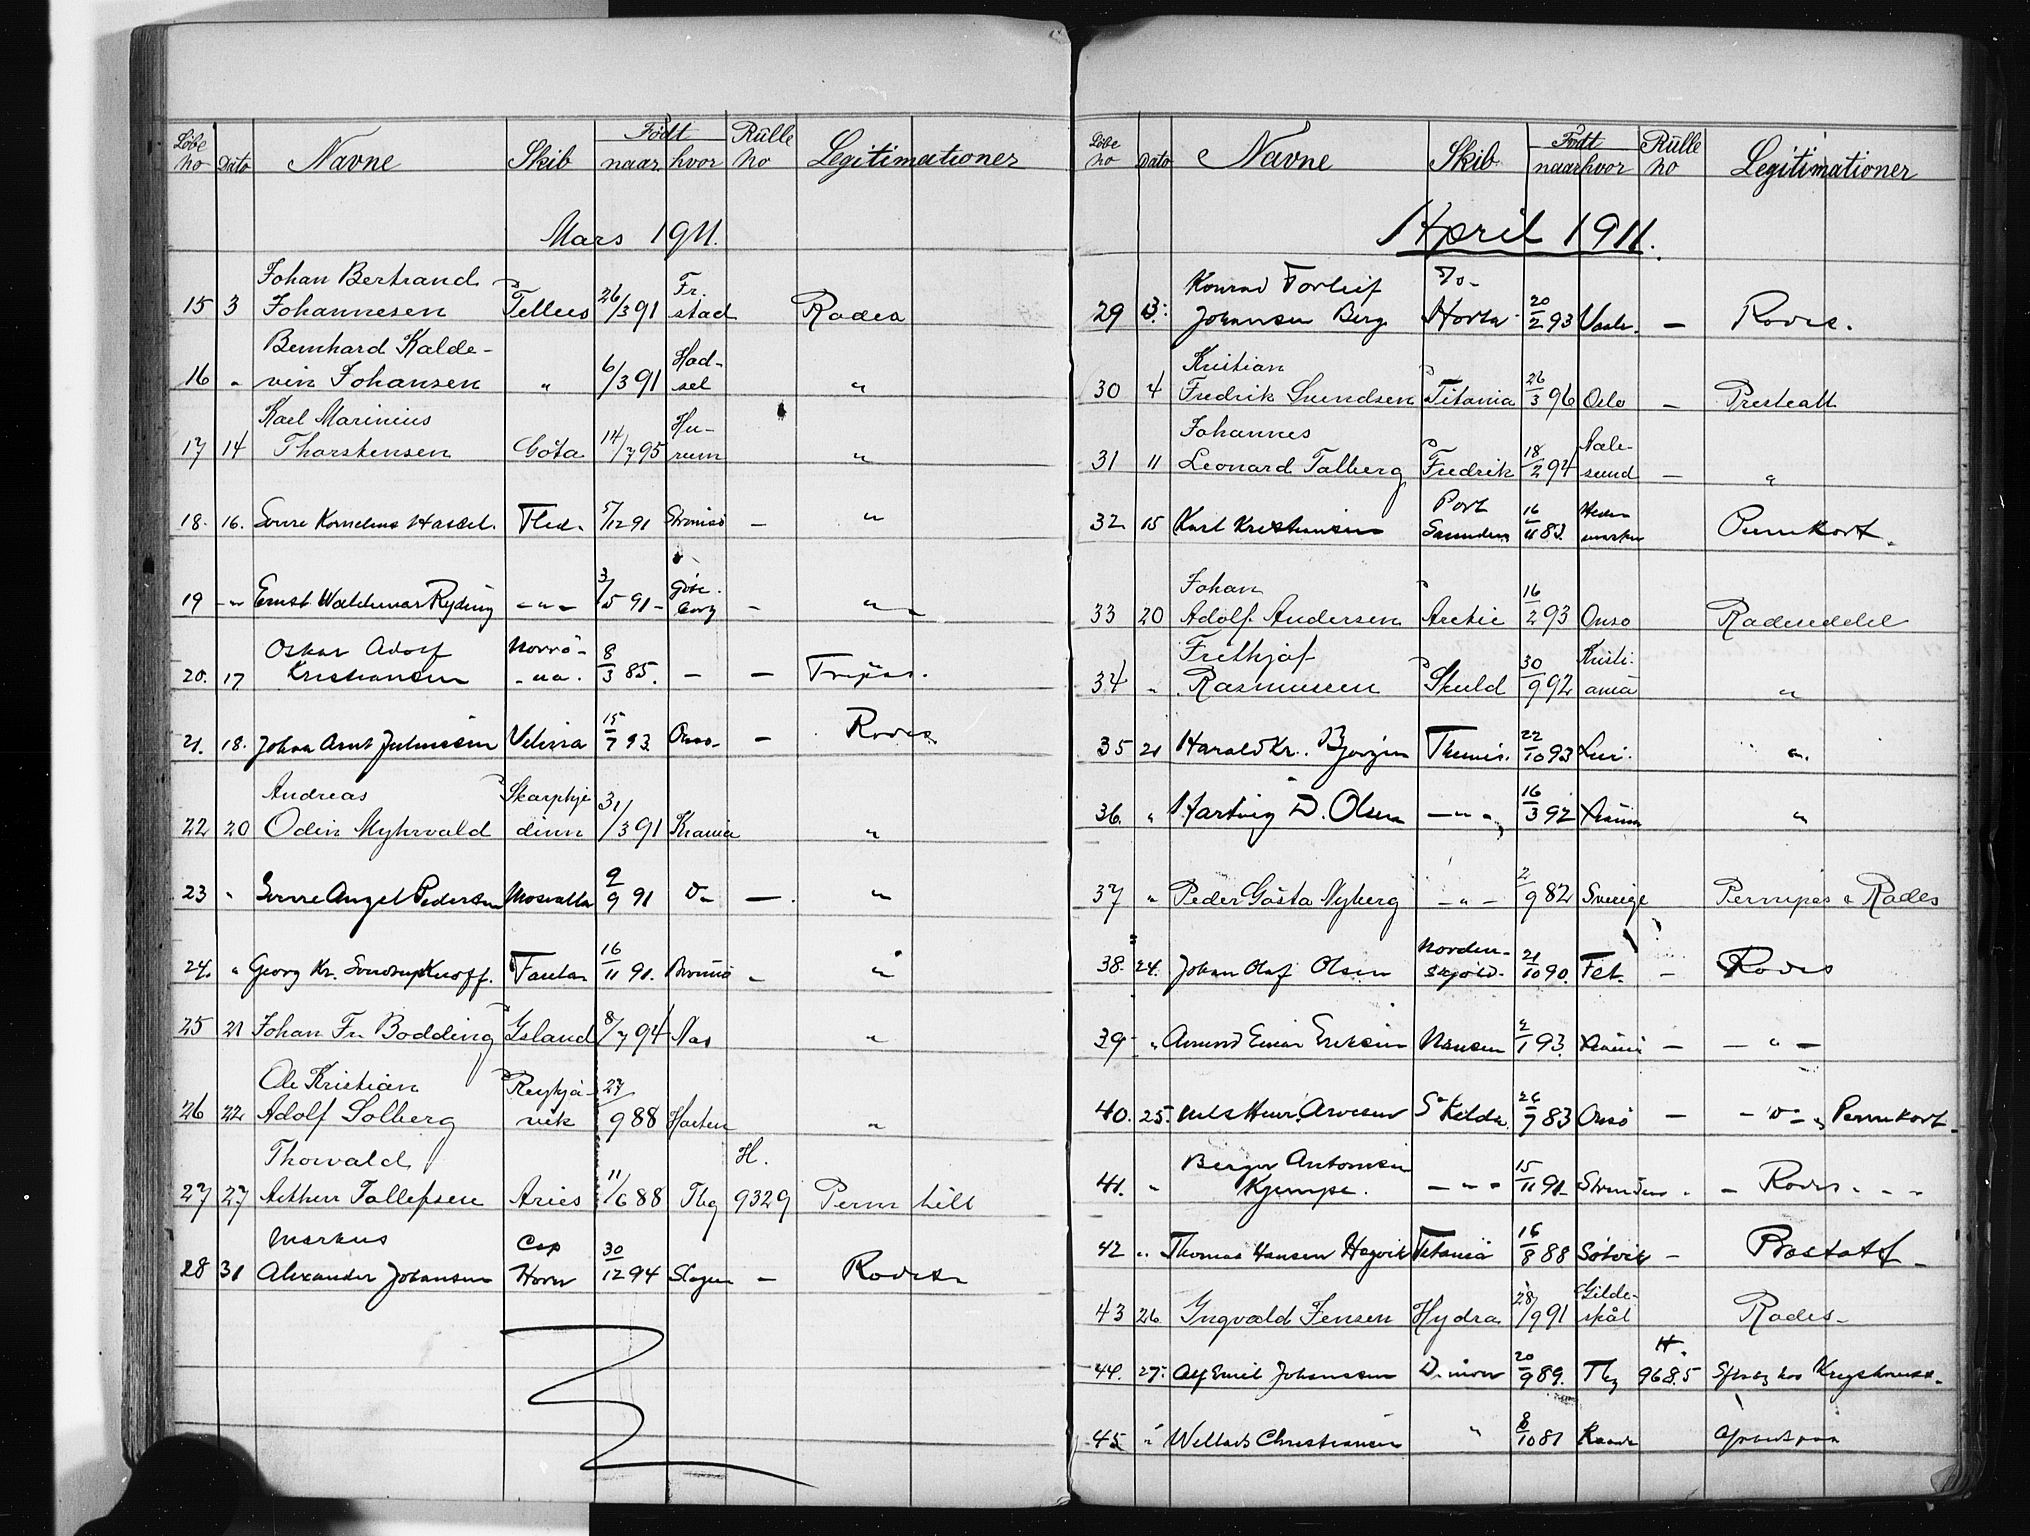 Løbe no Dato Navne Skib Født naar hvor Rulle No Legitimationer
Mars 1911.
Johan Bertrand Fr.
15 3 Johannesen Tellus 26/3 91 stad Rades
Bernhard Kalde- Had-
16 " vin Johansen " 6/3 91 sel "
Karl Marinius Hu-
17 14 Thorstensen Göta 14/7 95 rum "
18. 16. Sverre Kornelius Hassel. Fled. 5/12 91 Strömsö - "
Göte-
19 -"- Ernst Waldemar Ryding -"- 3/5 91- borg - "
Oskar Adolf Norrö- 8
20. 17 Kristiansen na. 3 85. - - Tripas.
21. 18. Johan Arnt Juliussen Velixia 15/7 93. Onsö - Rades
Andreas Skarphje
22 20 Odin Myhrvald dinn 31/3 91 Krania "
23 " Sverre Angel Pedersen Mosvalla 9/9 91 Do - "
24. " Georg Kr. Sverdrup Knoff. Fanta 16/11 91. Brönnö - "
25 21 Johan Fr. Bodding Island 8/7 94 Nas "
Ole Kristian Reykja- 27
26 22 Adolf Solberg vik 9 88 Horten "
Thorvald H.
27 27 Arthur Tollefsen Aries 11/6 88 Tbg 9329 Perm till
Markus Cap 30
28 31 Alexander Johansen Horn 12 94 Slagen - Rades
Løbe no Dato Navne Skib Født naar hvor Rulle no Legitimationer
April 1911.
Konrad Torleif S/o-
29 3. Johansen Berg Horta 20/2 93 Vaaler. - Rades.
Kristian
30 4 Fredrik Svendsen Titania 26/3 96 Oslo - Presteatt
Johannes Aale-
31 11 Leonard Talberg Fredrik 18/2 94 sund - "
Port Hede
32 15 Karl Kristiansen Saunders 16/11 83. marken Permkort.
Johan
33 20 Adolf Andersen Arctic 16/2 93 Onsö Radeseddel
Frithjof Kristi-
34 " Rasmussen Skuld 30/9 92 ania "
35 21 Harald Kr. Bjorgen Themis. 22/10 93 Lier. "
36. " Hartvig D. Olsen -"- 16/3 92 Krania "
37 " Peder Gösta Nyberg -"- 2/9 82 Sverige Permpas & Rades
Norden-
38. 24. Johan Olaf Olsen skjöld. 21/10 90. Fet. - Rades
39 " Amund Einar Eriksen Nansen 2/1 93. Krania - - " -
40. 25. Nils Henr. Arvesen St Kilda 26/7 83 Onsö - - " - Permkort.
Berger Antonsen
41. " Kjempe. -"- 15/11 91- - Rades - -
42 " Thomas Hansen Hagvik Titania 16/8 88 Sötvik - Prestatt.
Gilde-
43 26 Ingvald Jensen Hydra 28/9 91 skål Rades-
H.
44. 27. Alf Emil Johanssen 20/9 89. Tbg 9685
45 " Willads Christiansen " 8/10 81 Raade